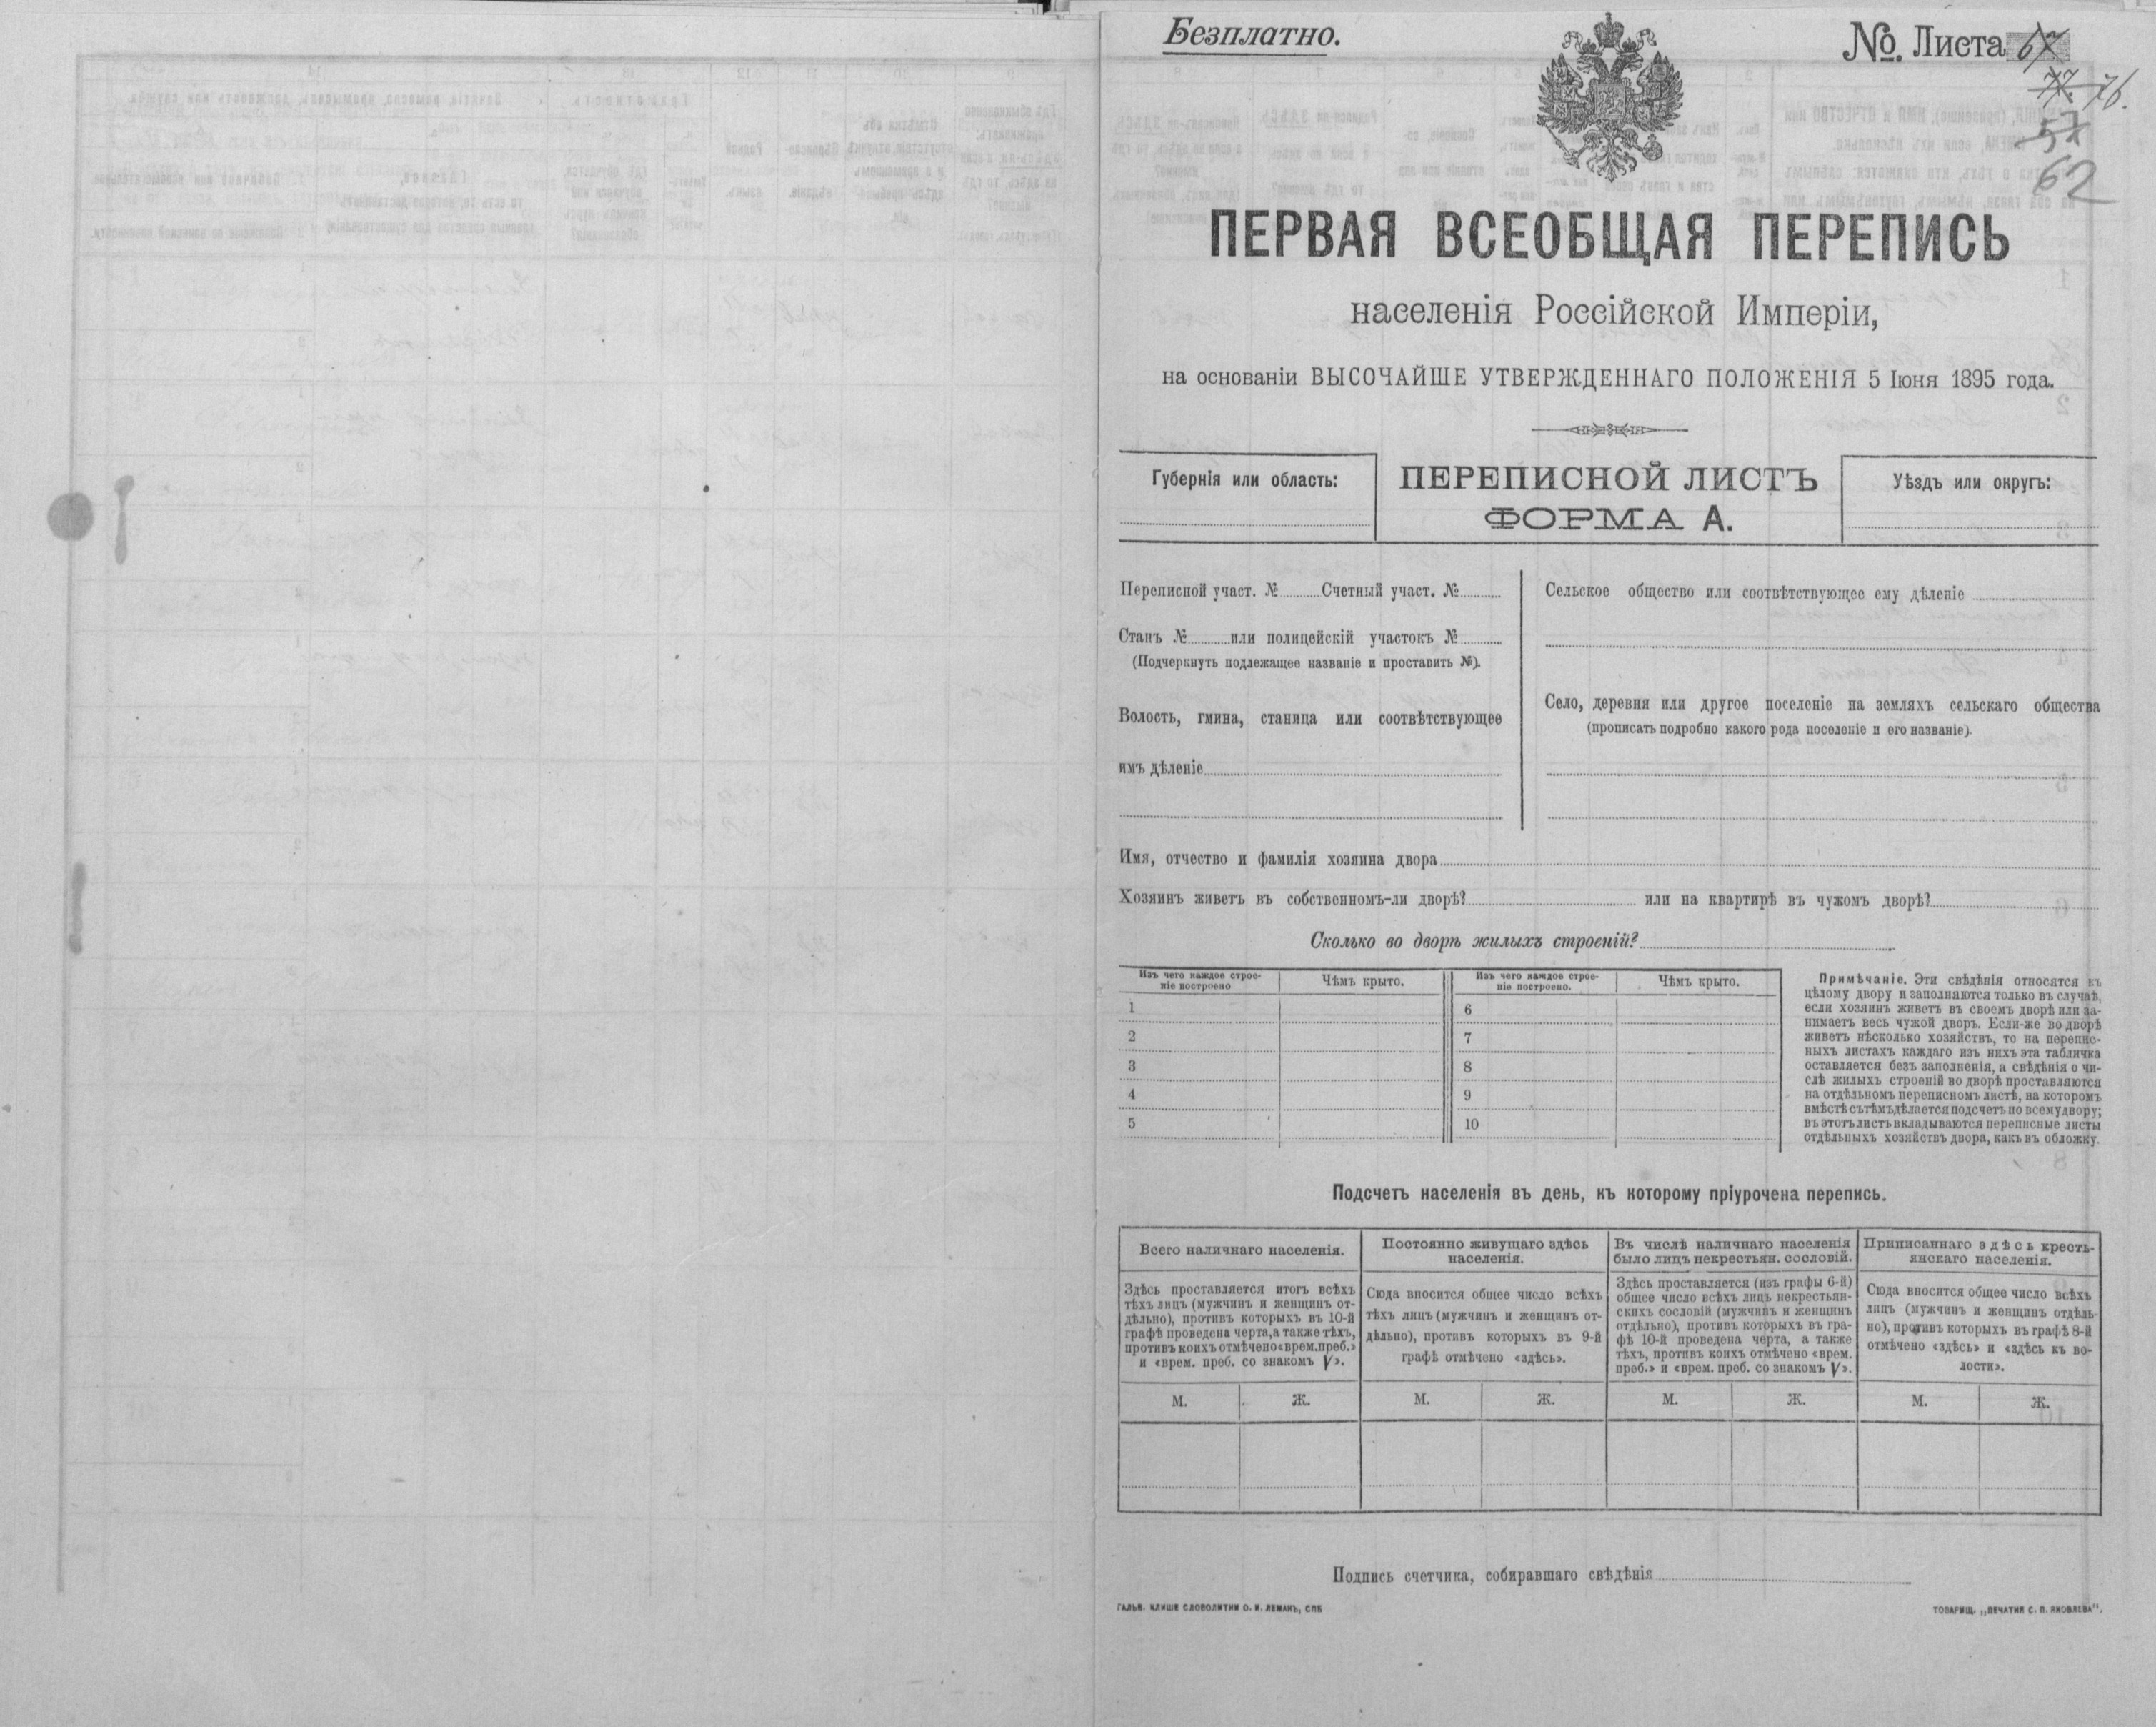 Безплатно.
№ Листа 67
77. 76.
57
62
ПЕРВАЯ ВСЕОБЩАЯ ПЕРЕПИСЬ
населенія Россійской Имперіи,
на основаніи ВЫСОЧАЙШЕ УТВЕРЖДЕННАГО ПОЛОЖЕНІЯ 5 Іюня 1895 года.
Губернія или область:
ПЕРЕПИСНОЙ ЛИСТЪ
ФОРМА А.
Уѣздъ или округъ:
Переписной участ. № Счетный участ. №
Станъ № или полицейскій участокъ №
(Подчеркнуть подлежащее названіе и проставить №).
Волость, гмина, станица или соотвѣтствующее
имъ дѣленіе
Сельское общество или соотвѣтствующее ему дѣленіе
Село, деревня или другое поселеніе на земляхъ сельскаго общества
(прописать подробно какого рода поселеніе и его названіе).
Имя, отчество и фамилія хозяина двора
Хозяинъ живетъ въ собственномъ-ли дворѣ? или на квартирѣ въ чужомъ дворѣ?
Сколько во дворѣ жилыхъ строеній?
Изъ чего каждое строе-
ніе построено
Чѣмъ крыто.
Изъ чего каждое строе-
ніе построено.
Чѣмъ крыто.
1
2
3
4
5
6
7
8
9
10
Примѣчаніе. Эти свѣдѣнія относятся къ
цѣлому двору и заполняются только въ случаѣ,
если хозяинъ живетъ въ своемъ дворѣ или за-
нимаетъ весь чужой дворъ. Если-же во дворѣ
живетъ нѣсколько хозяйствъ, то на перепис-
ныхъ листахъ каждаго изъ нихъ эта табличка
оставляется безъ заполненія, а свѣдѣнія о чи-
слѣ жилыхъ строеній во дворѣ проставляются
на отдѣльномъ переписномъ листѣ, на которомъ
вмѣстѣ съ тѣмъ дѣлается подсчетъ по всему двору;
въ этотъ листъ вкладываются переписные листы
отдѣльныхъ хозяйствъ двора, какъ въ обложку.
Подсчетъ населенія въ день, къ которому пріурочена перепись.
Всего наличнаго населенія.
Здѣсь проставляется итогъ всѣхъ
тѣхъ лицъ (мужчинъ и женщинъ от-
дѣльно), противъ которыхъ въ 10-й
графѣ проведена черта, а также тѣхъ,
противъ коихъ отмѣчено «врем. преб.»
и «врем. преб. со знакомъ V».
М. Ж.
Постоянно живущаго здѣсь
населенія.
Сюда вносится общее число всѣхъ
тѣхъ лицъ (мужчинъ и женщинъ от-
дѣльно), противъ которыхъ въ 9-й
графѣ отмѣчено «здѣсь».
М. Ж.
Въ числѣ наличнаго населенія
было лицъ некрестьян. сословій.
Здѣсь проставляется (изъ графы 6-й)
общее число всѣхъ лицъ некрестьян-
скихъ сословій (мужчинъ и женщинъ
отдѣльно), противъ которыхъ въ гра-
фѣ 10-й проведена черта, а также
тѣхъ, противъ коихъ отмѣчено «врем.
преб.» и «врем. преб. со знакомъ V».
М. Ж.
Приписаннаго здѣсь кресть-
янскаго населенія.
Сюда вносится общее число всѣхъ
лицъ (мужчинъ и женщинъ отдѣль-
но), противъ которыхъ въ графѣ 8-й
отмѣчено «здѣсь» и «здѣсь къ во-
лости».
М. Ж.
Подпись счетчика, собиравшаго свѣдѣнія
ГАЛЬВ. КЛИШЕ СЛОВОЛИТНИ О. И. ЛЕМАНЪ, СПБ
ТОВАРИЩ. „ПЕЧАТНЯ С. П. ЯКОВЛЕВА“.